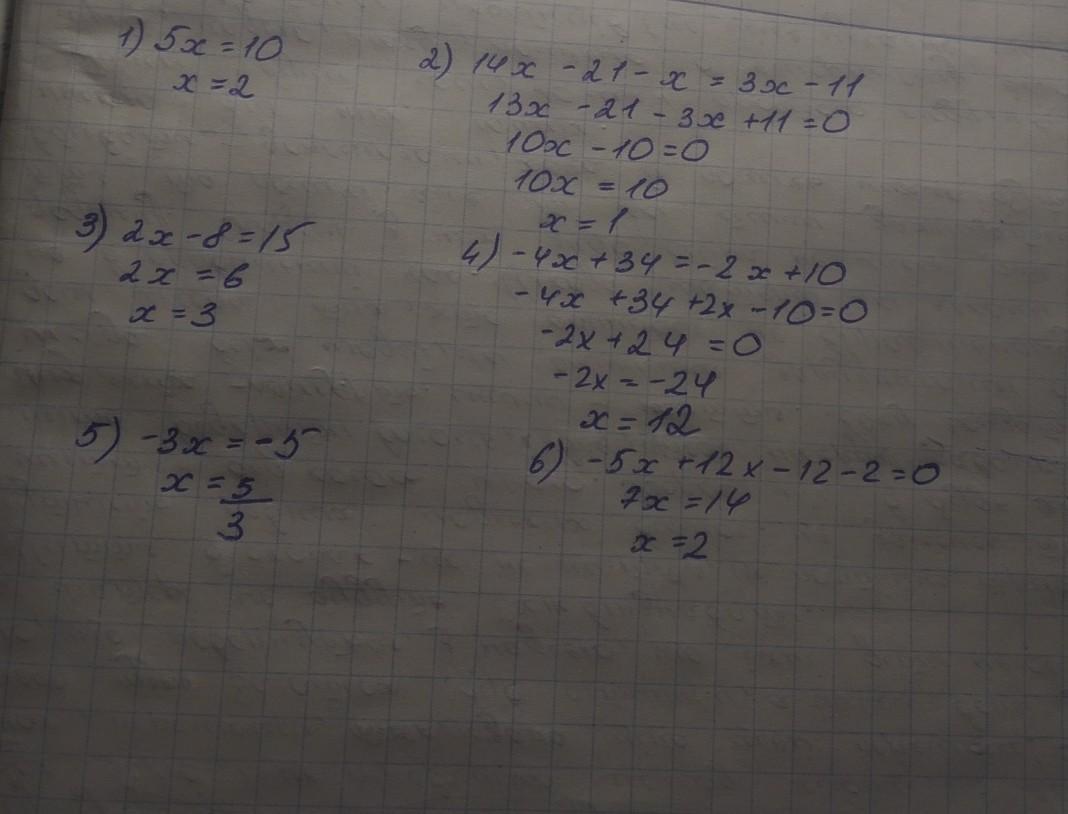 1) 5x = 10
x = 2
2) 14x - 21 - x = 3x - 11
13x - 21 - 3x + 11 = 0
10x - 10 = 0
10x = 10
x = 1
3) 2x - 8 = 15
2x = 6
x = 3
4) -4x + 34 = -2x + 10
-4x + 34 + 2x - 10 = 0
-2x + 24 = 0
-2x = -24
x = 12
5) -3x = -5
x = 5/3
6) -5x + 12x - 12 - 2 = 0
7x = 14
x = 2